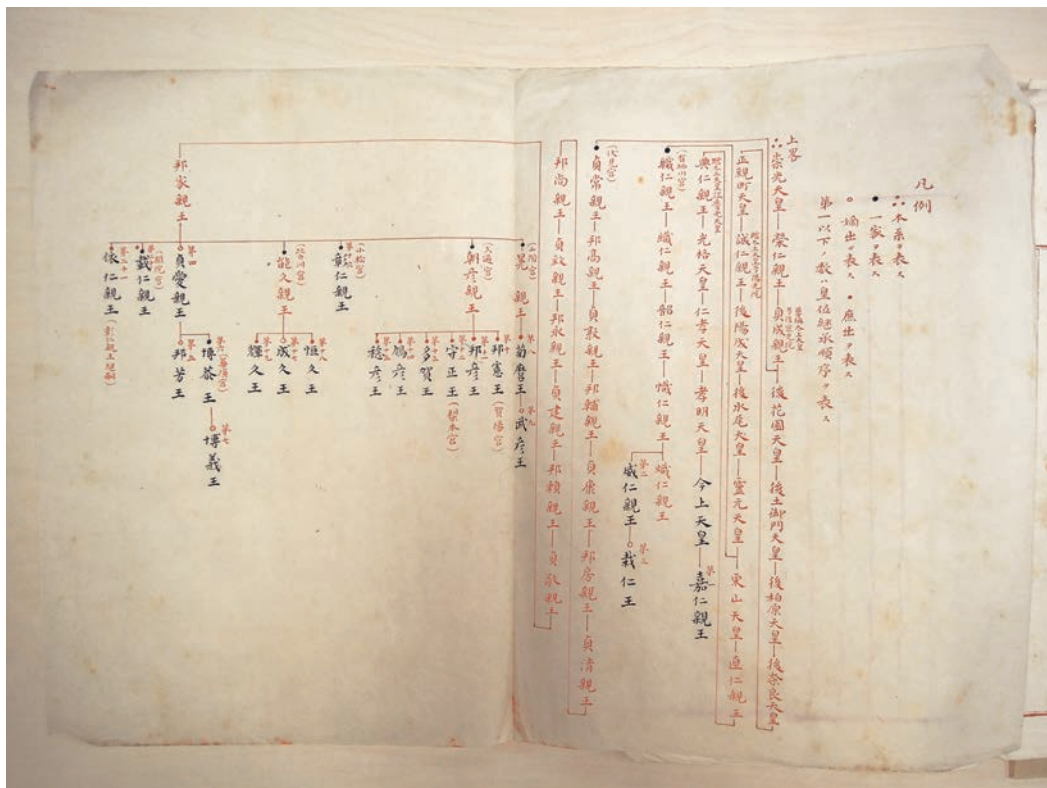 凡例
∴本系ヲ表ス
●一家ヲ表ス
○嫡出ヲ表ス ・庶出ヲ表ス
第一以下ノ数ハ皇位継承順序ヲ表ス
上畧
∴崇光天皇―榮仁親王―貞成親王―後花園天皇―後土御門天皇―後柏原天皇―後奈良天皇
正親町天皇―誠仁親王―後陽成天皇―後水尾天皇―靈元天皇―東山天皇―直仁親王
典仁親王―光格天皇―仁孝天皇―孝明天皇―今上天皇―嘉仁親王
第一
(有栖川宮)
●職仁親王―織仁親王―韶仁親王―幟仁親王―熾仁親王
第二
威仁親王―○栽仁王
第三
(伏見宮)
●貞常親王―邦高親王―貞敦親王―邦輔親王―貞康親王―邦房親王―貞清親王
邦尚親王―貞致親王―邦永親王―貞建親王―邦頼親王―貞敬親王
邦家親王
(山階宮)
晃親王
第八
菊麿王―○武彦王
第九
(久邇宮)
朝彦親王
第十
邦憲王
(賀陽宮)
第十一
邦彦王
守正王
(梨本宮)
多賀王
鳩彦王
稔彦王
(小松宮)
彰仁親王
能久親王
第十八
恒久王
第十七
成久王
第十九
輝久王
第四
○貞愛親王
博恭王―○博義王
第七
第五
邦芳王
(閑院宮)
載仁親王
依仁親王